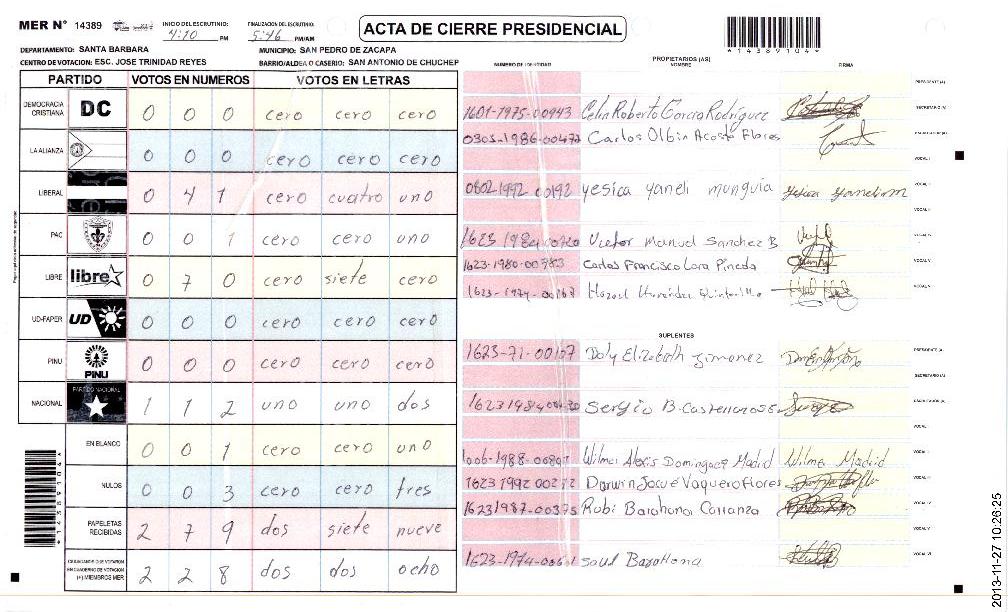 MER N° 14389 INICIO DEL ESCRUTINIO: 4:10 PM FINALIZACION DEL ESCRUTINIO: 5:46 PM/AM
ACTA DE CIERRE PRESIDENCIAL
*14389104*
DEPARTAMENTO: SANTA BARBARA MUNICIPIO: SAN PEDRO DE ZACAPA
CENTRO DE VOTACION: ESC. JOSE TRINIDAD REYES BARRIO/ALDEA O CASERIO: SAN ANTONIO DE CHUCHEP
PARTIDO VOTOS EN NUMEROS VOTOS EN LETRAS
DEMOCRACIA CRISTIANA DC 0 0 0 cero cero cero
LA ALIANZA 0 0 0 cero cero cero
LIBERAL 0 4 1 cero cuatro uno
PAC 0 0 1 cero cero uno
LIBRE libre 0 7 0 cero siete cero
UD-FAPER UD 0 0 0 cero cero cero
PINU PINU 0 0 0 cero cero cero
NACIONAL PARTIDO NACIONAL 1 1 2 uno uno dos
EN BLANCO 0 0 1 cero cero uno
NULOS 0 0 3 cero cero tres
PAPELETAS RECIBIDAS 2 7 9 dos siete nueve
CIUDADANOS QUE VOTARON EN CUADERNO DE VOTACION (+) MIEMBROS MER 2 2 8 dos dos ocho
*14389104*
PROPIETARIOS (AS)
NUMERO DE IDENTIDAD NOMBRE FIRMA
PRESIDENTE (A)
1601-1975-00943 Celin Roberto Garcia Rodriguez SECRETARIO (A)
0303-1986-00472 Carlos Olbin Acosta Flores ESCRUTADOR (A)
VOCAL I
0802 1992 00192 yesica yaneli munguia Yesica Yaneli m VOCAL II
VOCAL III
1623 1984 00720 Victor Manuel Sanchez B VOCAL IV
1623-1980-00383 Carlos Francisco Lara Pineda VOCAL V
1623-1974-00167 Hernández VOCAL VI
SUPLENTES
1623-71-00107 Doly Elizabeth Jimenez PRESIDENTE (A)
SECRETARIO (A)
Sergio B. Castellanos ESCRUTADOR (A)
VOCAL I
Wilmer Alexis Dominguez Madrid Wilmer Madrid VOCAL II
1623 1992 00272 Darwin Josue Vaquero Flores VOCAL III
1623 1987-00375 Robi Barahona Carranza VOCAL IV
VOCAL V
Saul Barahona VOCAL VI
2013-11-27 10:26:25